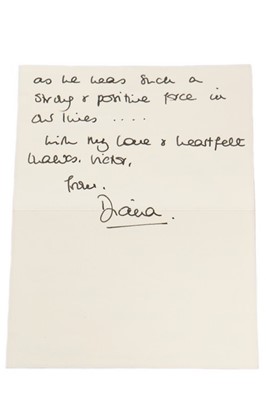 as he was such a
strong & positive force in
our lives ....
With my love & heartfelt
thanks. Victor,
from.
Diana.